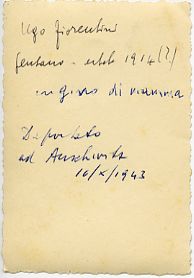 Ugo Fiorentini
Gentano - 1914 (?)
in di mamma
Deportato
ad Auschwitz
16/X/1943